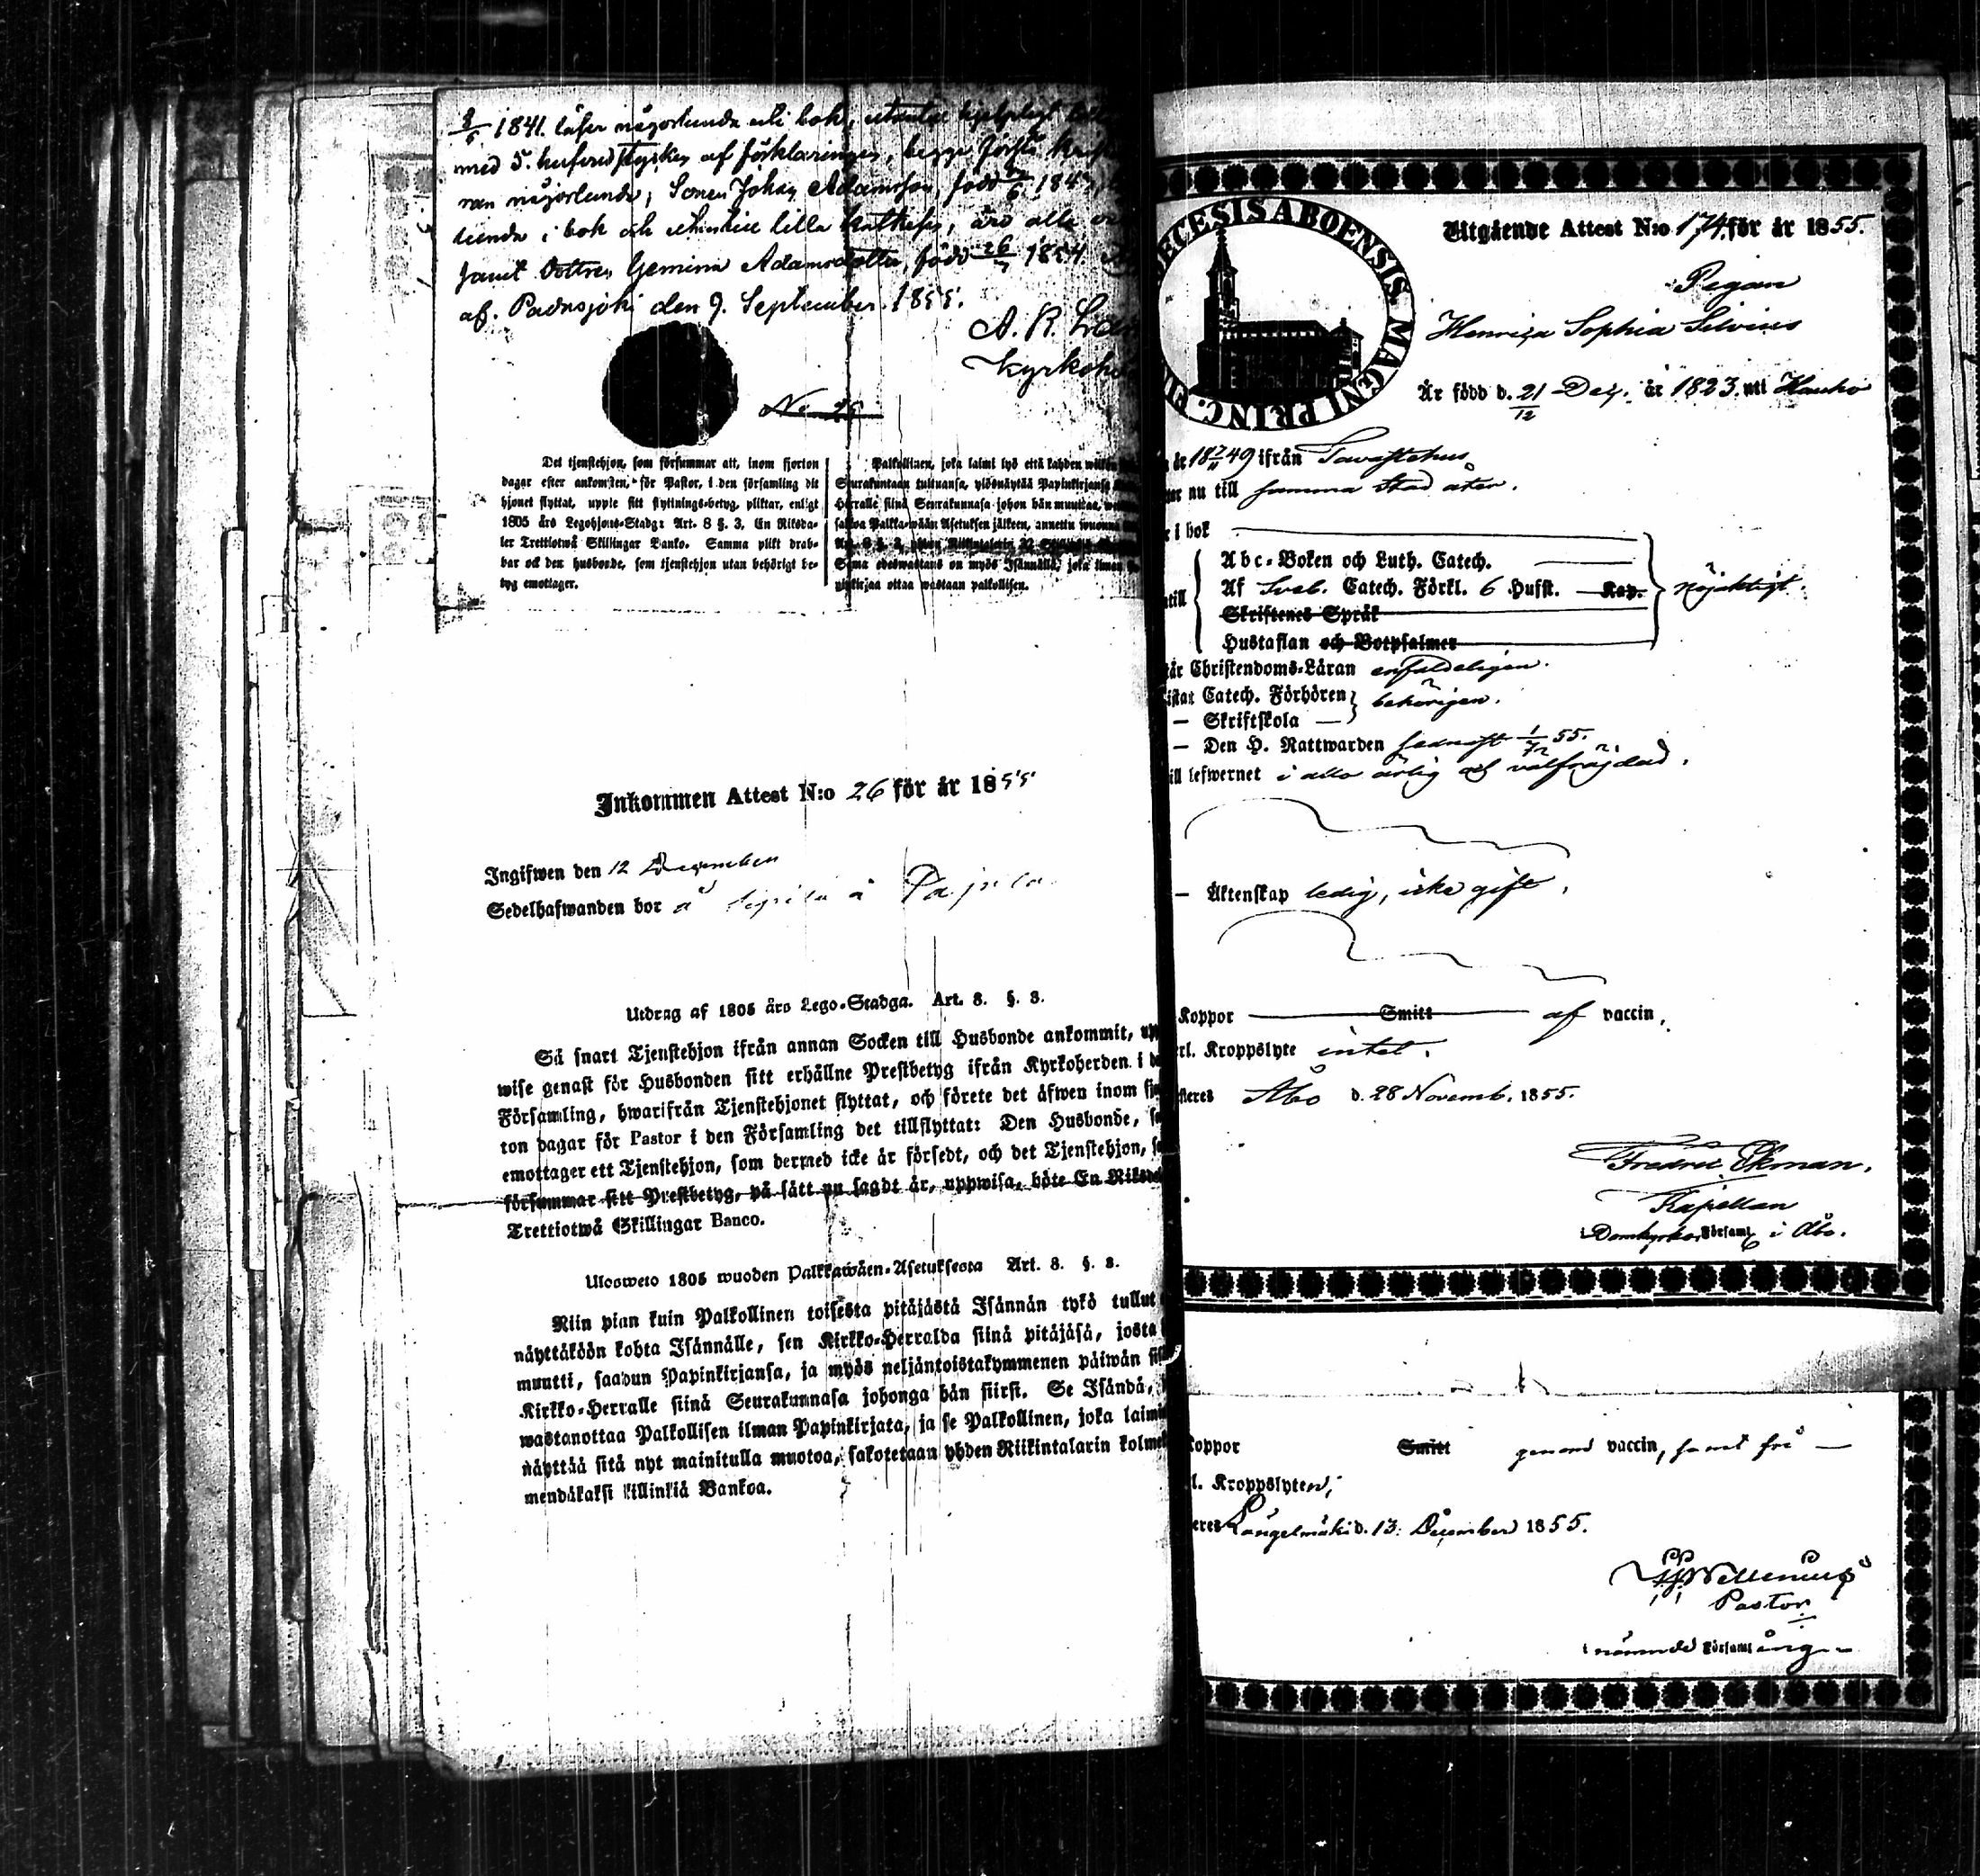 1841. läser någorlunda uti bok, utantill hjelpligt
med 5. hufvudstycken af förklaringen, begge första
nan någorlunda; Sonen Johan Adamsson, född 1847,
lunda i bok och utantill lilla katkesen, äro alla
samt dottren Gemima Adamsdotter, född 26/7 1854.
af. Padasjoki den 9. September 1855.
A. R.
Kyrkohe
No 25
Det tjenstehjon, som försummar att, inom fjorton
dagar efter ankomsten, för Pastor, i den församling dit
hjonet flyttat, uppte sitt flyttnings-betyg, pliktar, enligt
1805 års Legohjons-Stadg: Art. 8 §. 3, En Riksda-
ler Trettiotwå Skillingar Banko. Samma plikt drab-
bar ock den husbonde, som tjenstehjon utan behörigt be-
tyg emottager.
Palkollinen, joka laimi lyö että kahden
Seurakuntaan tultuansa, ylösnäytää Papinkirjansa
Herralle siinä Seurakunnasa johon hän muuttaa,
Palkka-wään Asetuksen jälkeen, annettu wuonna
Art. 8 §. 3, yhden Riikintalarin 32
Sama edeswastaus on myös Isännällä, joka ilman
pinkirjaa ottaa wastaan palkollisen.
Inkommen Attest N:o 26 för år 1855
Ingifwen den 12 December
Sedelhafwanden bor å Sipilä å Pajula
Utdrag af 1805 års Lego-Stadga. Art. 8. §. 3.
Så snart Tjenstehjon ifrån annan Socken till Husbonde ankommit, upp
wise genast för Husbonden sitt erhållne Prestbetyg ifrån Kyrkoherden i
Församling, hwarifrån Tjenstehjonet flyttat, och förete det äfwen inom fj
ton dagar för Pastor i den Församling det tillflyttat: Den Husbonde, s
emottager ett Tjenstehjon, som dermed icke är försedt, och det Tjenstehjon, s
försummar sitt Prestbetyg, på sätt nu sagdt är, uppwisa, böte En Riksda
Trettiotwå Skillingar Banco.
Ulosweto 1805 wuoden Palkkawäen-Asetuksesta Art. 8. §. 3.
Niin pian kuin Palkollinen toisesta pitäjästä Isännän tykö tullut
näyttäköön kohta Isännälle, sen Kirkko-Herralda siinä pitäjäsä, josta
muutti, saadun Papinkirjansa, ja myös neljäntoistakymmenen päiwän sis
Kirkko-Herralle siinä Seurakunnasa johonga hän siirst. Se Isändä,
wastanottaa Palkollisen ilman Papinkirjata, ja se Palkollinen, joka laimi
näyttää sitä nyt mainitulla muotoa, sakotetaan yhden Riikintalarin kolme
mendäkaksi killinkiä Bankoa.
DECESIS ABOENSIS MAGNI PRINC. FIN
Utgående Attest N:o 174 för år 1855.
Pigan
Henrica Sophia Silvius
Är född d. 21/12 Dec. år 1823 uti Hauho
år 1849 ifrån Tavastehus
nu till samma stad åter.
i bok
Abc-Boken och Luth. Catech.
Af Sveb. Catech. Förkl. 6 Hufst. Kap.
Skriftenes Språk
Hustaflan och Botpsalmer
nöjaktigt.
Christendoms-Läran enfaldeligen.
Catech. Förhören
— Skriftskola —
behörigen.
— Den H. Nattwarden sednast 55.
ill lefwernet i allo ärlig och välfrägdad.
— Äktenskap ledig, icke gift,
Koppor Smitt af vaccin,
rl. Kroppslyte intet.
steres Åbo d. 28 Novemb. 1855.
Fredric Ekman.
Kapellan
i Domkyrko Församl. i Åbo.
Koppor Smitt genom vaccin, samt fri —
l. Kroppslyten;
eres Längelmäki d. 13. December 1855.
Wellenius
Pastor
i nämnde Församling.